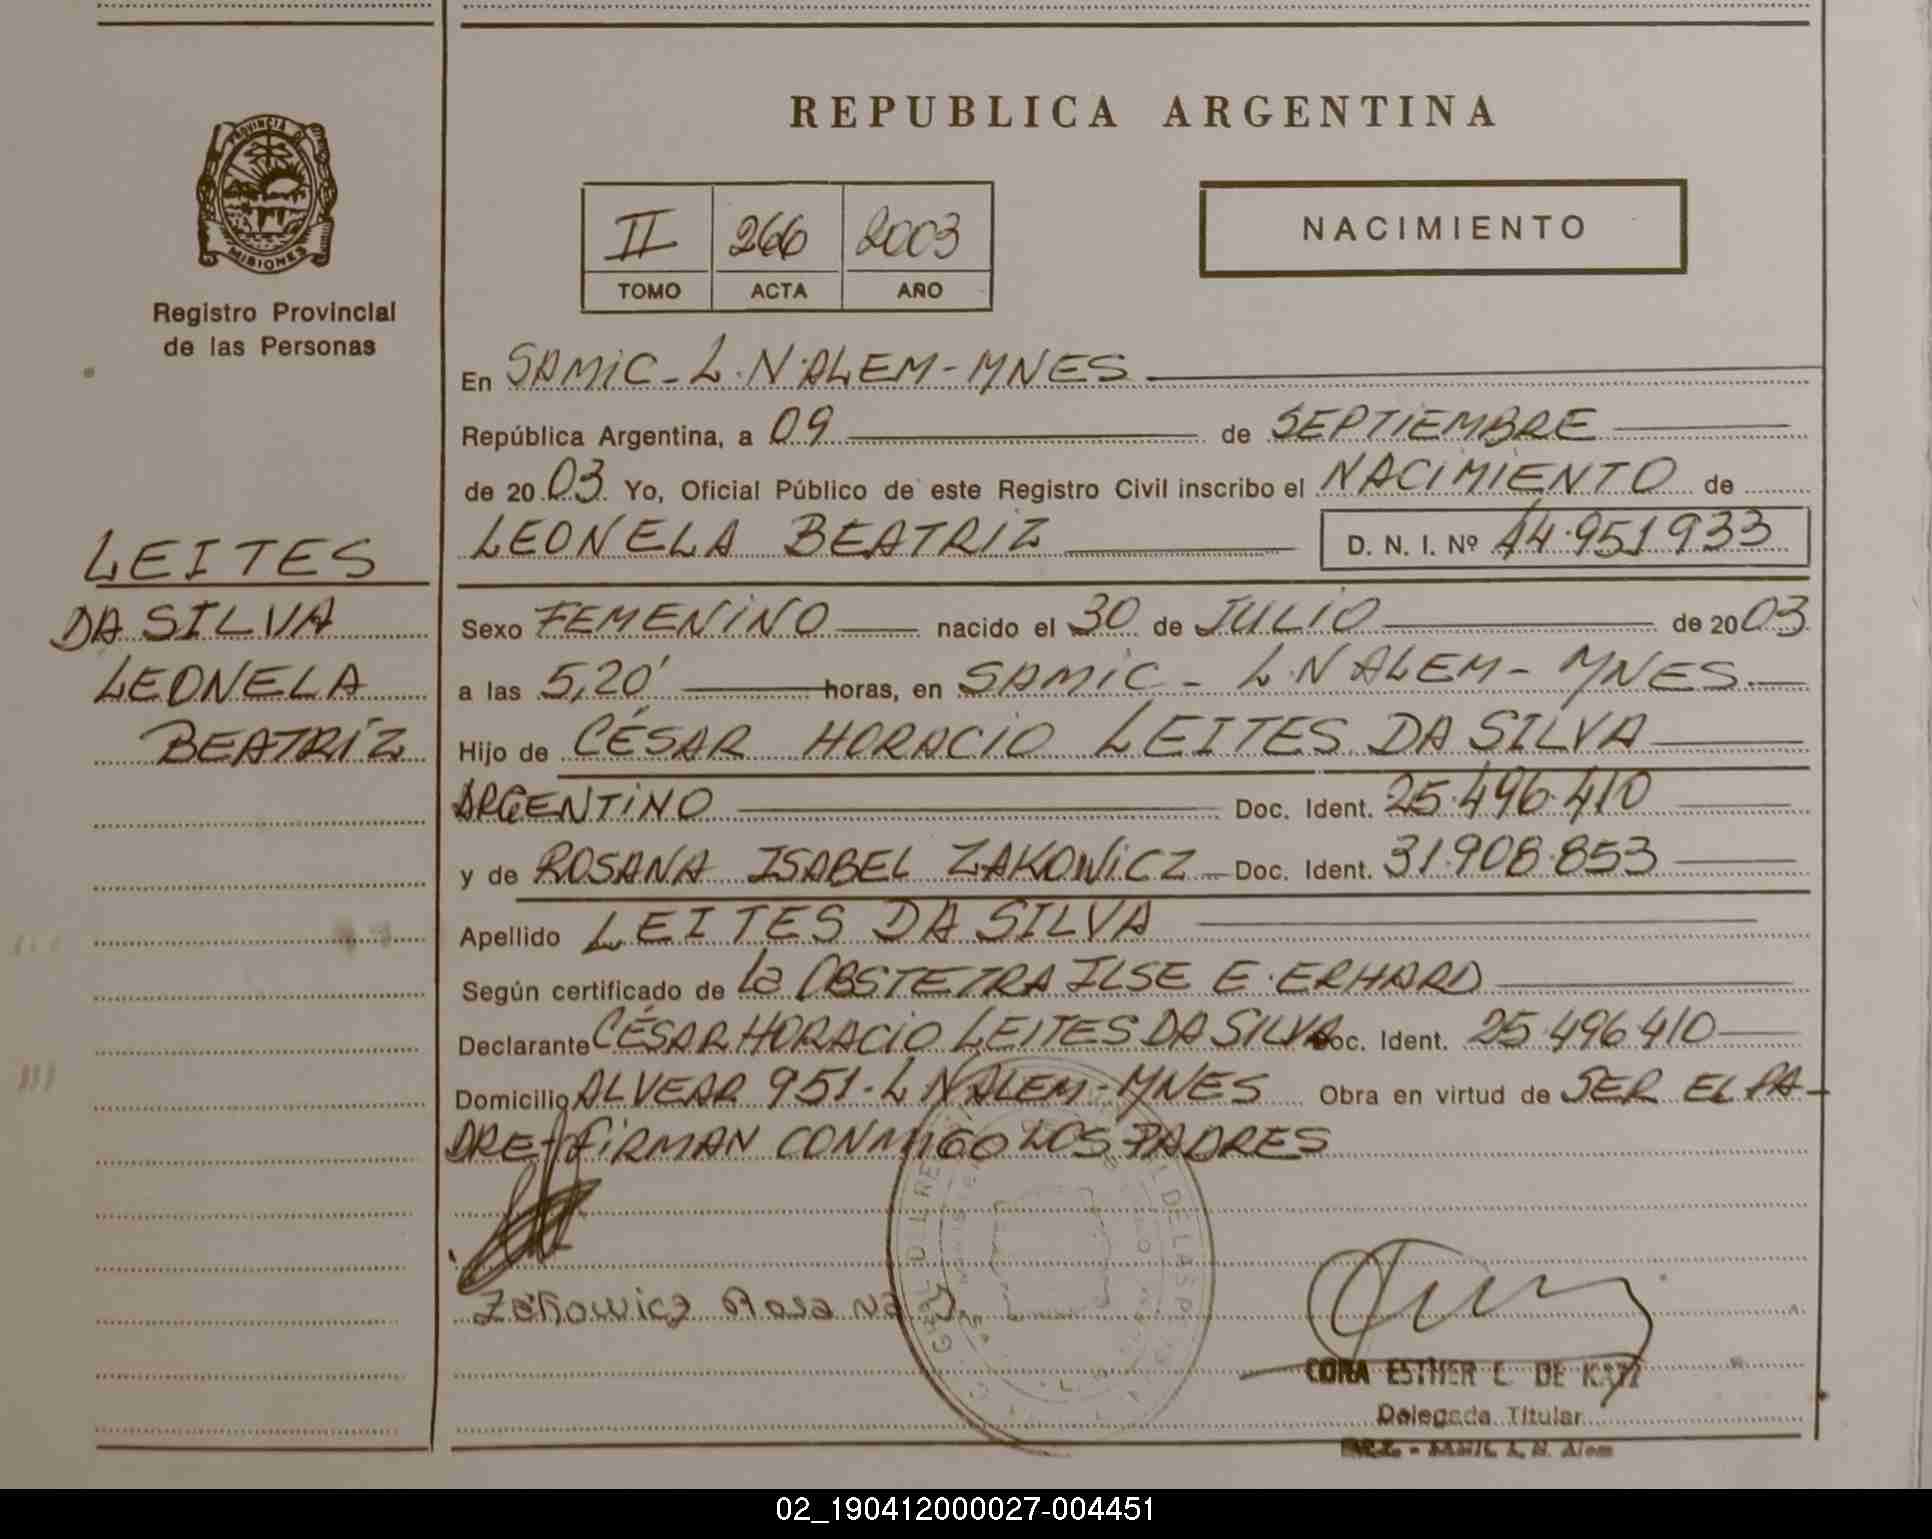 REPUBLICA ARGENTINA
PROVINCIA DE
MISIONES
Registro Provincial
de las Personas
II 266 2003
TOMO ACTA AÑO
NACIMIENTO
En SAMIC - L.N. ALEM - MNES
República Argentina, a 09 de SEPTIEMBRE
de 2003 Yo, Oficial Público de este Registro Civil inscribo el NACIMIENTO de
LEONELA BEATRIZ D. N. I. Nº 44.951.933
LEITES
DA SILVA
LEONELA
BEATRÍZ
Sexo FEMENINO nacido el 30 de JULIO de 2003
a las 5,20' horas, en SAMIC - L.N ALEM - MNES.
Hijo de CÉSAR HORACIO LEITES DA SILVA
ARGENTINO Doc. Ident. 25.496.410
y de ROSANA ISABEL ZAKOWICZ Doc. Ident. 31.908.853
Apellido LEITES DA SILVA
Según certificado de La OBSTETRA ILSE E. ERHARD
Declarante CÉSAR HORACIO LEITES DA SILVA Doc. Ident. 25.496.410
Domicilio ALVEAR 951 - L N ALEM - MNES Obra en virtud de SER EL PA-
DRE - FIRMAN CONMIGO LOS PADRES
Zakowicz Rosana I.
CORA ESTHER L. DE KATZ
Delegada Titular
L. N. Alem
02_190412000027-004451